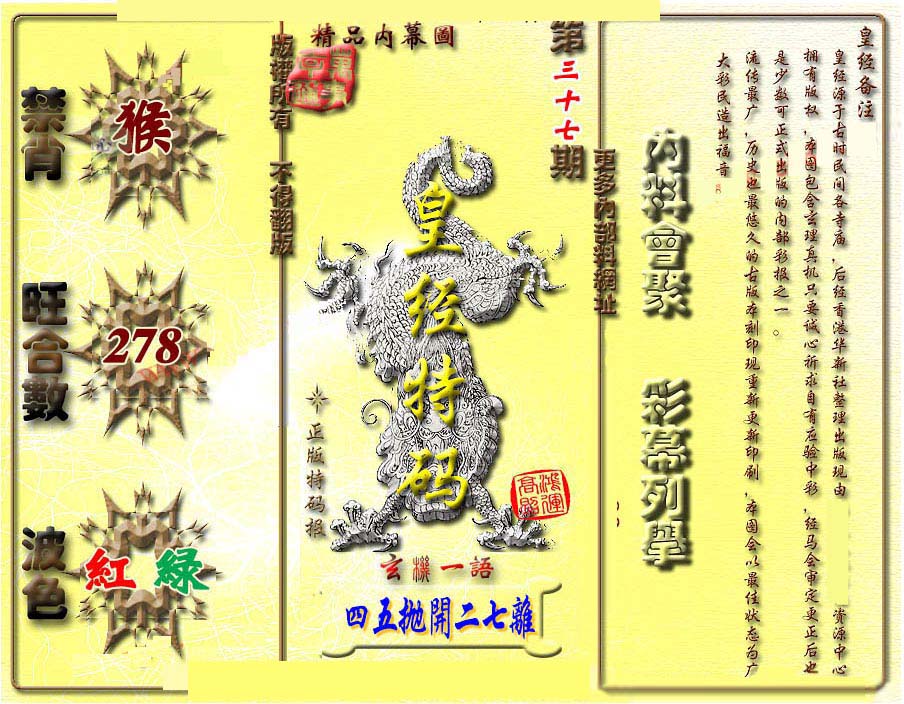 精品内幕圖
第三十七期
版權所有 不得翻版
更多內部料網址
禁肖
猴
旺合數
278
波色
紅 綠
皇经特码
正版特码报
鴻運高照
玄機一語
四五抛開二七離
內料會聚 彩幕列舉
皇经备注
皇经源于古时民间各寺庙,后经香港华新社整理出版现由 资源中心
拥有版权,本图包含玄理真机只要诚心祈求自有应验中彩,经马会审定更正后也
是少数可正式出版的内部彩报之一。
流传最广,历史也最悠久的古版本刻印现重新更新印刷,本图会以最佳状态为广
大彩民造出福音